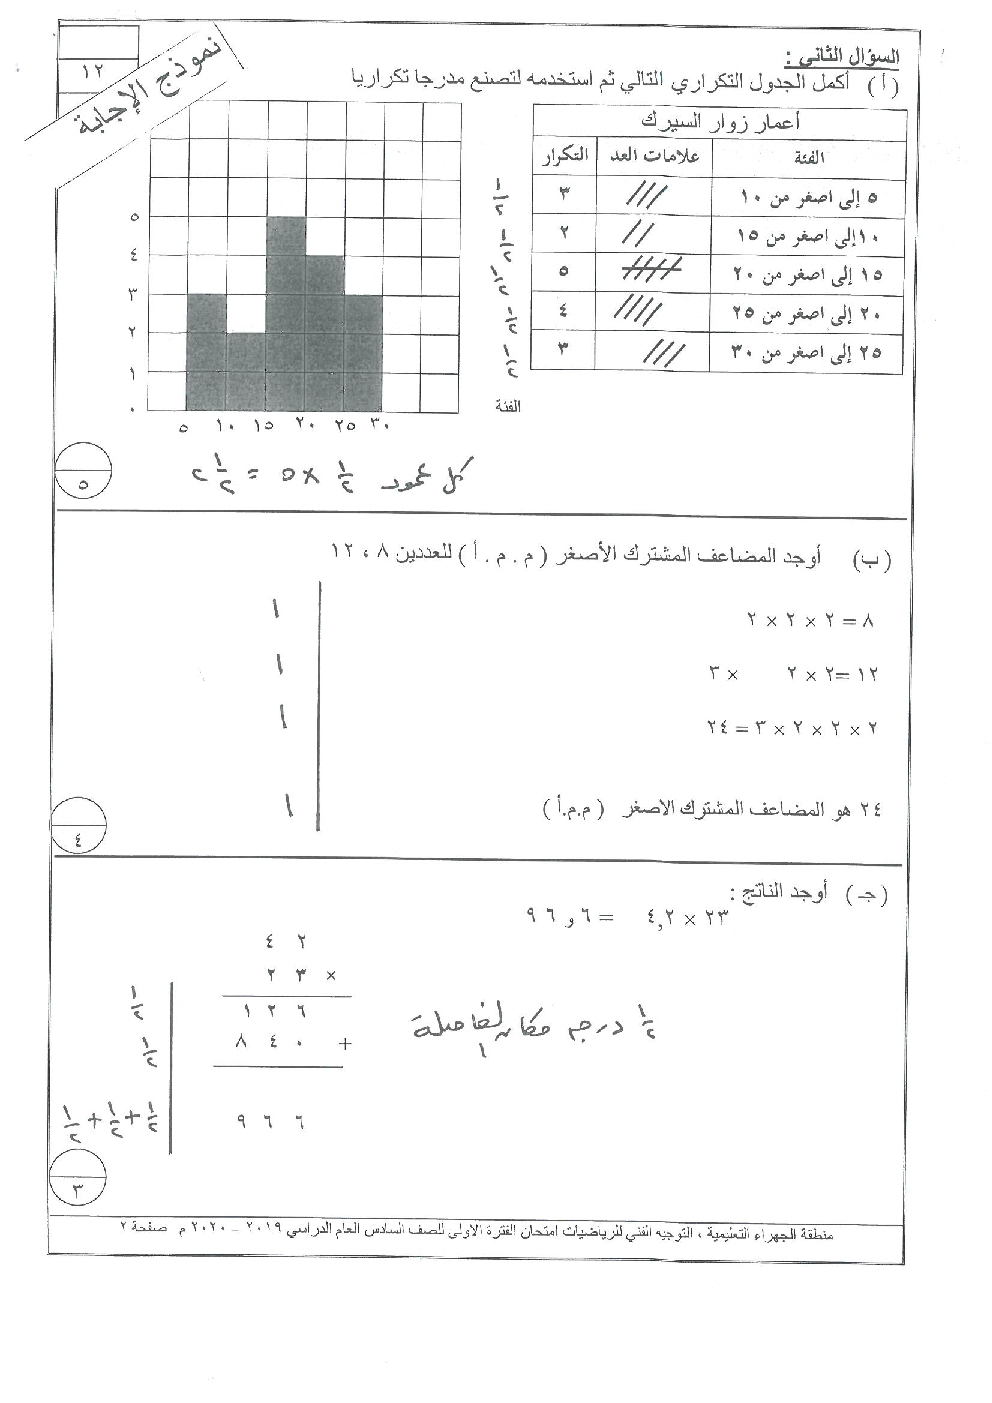 نموذج الإجابة
١٢
السؤال الثاني :
( أ ) أكمل الجدول التكراري التالي ثم استخدمه لتصنع مدرجا تكراريا
أعمار زوار السيرك
الفئة علامات العد التكرار
٥ إلى اصغر من ١٠ /// ٣
١٠إلى اصغر من ١٥ // ٢
١٥ إلى اصغر من ٢٠ ٥
٢٠ إلى اصغر من ٢٥ //// ٤
٢٥ إلى اصغر من ٣٠ /// ٣
١/٢
١/٢
١/٢
١/٢
١/٢
٥
٤
٣
٢
١
٠
الفئة
٥ ١٠ ١٥ ٢٠ ٢٥ ٣٠
كل عمود ١/٢ × ٥ = ٢ ١/٢
٥
( ب ) أوجد المضاعف المشترك الأصغر ( م . م . أ ) للعددين ٨ ، ١٢
٨ = ٢ × ٢ × ٢
١
١٢ =٢ × ٢ × ٣
١
٢ × ٢ × ٢ × ٣ = ٢٤
١
٢٤ هو المضاعف المشترك الاصغر ( م.م.أ )
١
٤
( جـ ) أوجد الناتج :
٢٣ × ٤,٢ = ٩٦ و ٦
٤ ٢
٢ ٣ ×
١ ٢ ٦
١/٢
٨ ٤ ٠ +
١/٢
٩ ٦ ٦
١/٢ + ١/٢ + ١/٢
١/٢ درجة مكان الفاصلة
٣
منطقة الجهراء التعليمية ، التوجيه الفني للرياضيات امتحان الفترة الاولى للصف السادس العام الدراسي ٢٠١٩ - ٢٠٢٠ م صفحة ٢